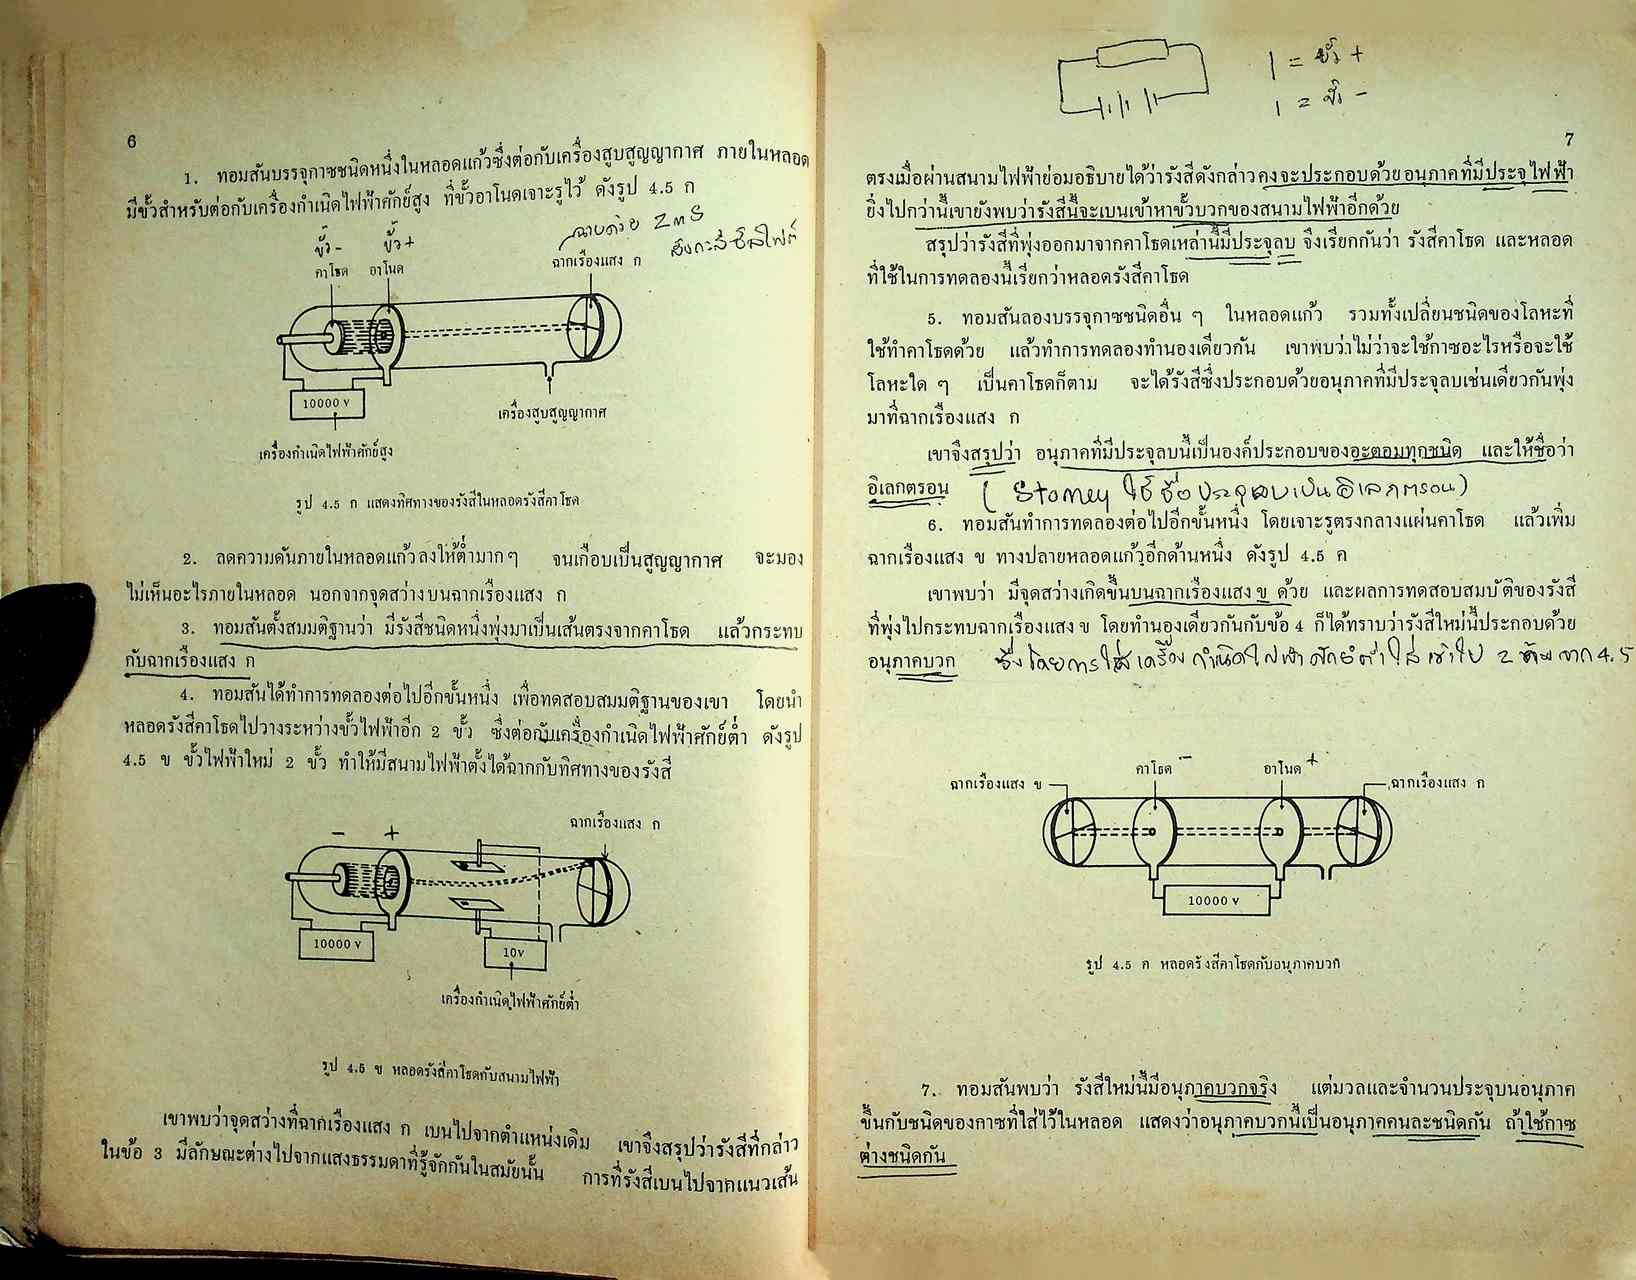 6
1. ทอมสันบรรจุกาซชนิดหนึ่งในหลอดแก้วซึ่งต่อกับเครื่องสูบสูญญากาศ ภายในหลอด
มีขั้วสำหรับต่อกับเครื่องกำเนิดไฟฟ้าศักย์สูง ที่ขั้วอาโนดเจาะรูไว้ ดังรูป 4.5 ก
ขั้ว - ขั้ว + ฉาบด้วย ZnS
คาโธด อาโนด ฉากเรืองแสง ก
10000 v
เครื่องสูบสูญญากาศ
เครื่องกำเนิดไฟฟ้าศักย์สูง
รูป 4.5 ก แสดงทิศทางของรังสีในหลอดรังสีคาโธด
2. ลดความดันภายในหลอดแก้วลงให้ต่ำมากๆ จนเกือบเป็นสูญญากาศ จะมอง
ไม่เห็นอะไรภายในหลอด นอกจากจุดสว่างบนฉากเรืองแสง ก
3. ทอมสันตั้งสมมติฐานว่า มีรังสีชนิดหนึ่งพุ่งมาเป็นเส้นตรงจากคาโธด แล้วกระทบ
กับฉากเรืองแสง ก
4. ทอมสันได้ทำการทดลองต่อไปอีกขั้นหนึ่ง เพื่อทดสอบสมมติฐานของเขา โดยนำ
หลอดรังสีคาโธดไปวางระหว่างขั้วไฟฟ้าอีก 2 ขั้ว ซึ่งต่อกับเครื่องกำเนิดไฟฟ้าศักย์ต่ำ ดังรูป
4.5 ข ขั้วไฟฟ้าใหม่ 2 ขั้ว ทำให้มีสนามไฟฟ้าตั้งได้ฉากกับทิศทางของรังสี
- + ฉากเรืองแสง ก
10000 v
10v
เครื่องกำเนิดไฟฟ้าศักย์ต่ำ
รูป 4.5 ข หลอดรังสีคาโธดกับสนามไฟฟ้า
เขาพบว่าจุดสว่างที่ฉากเรืองแสง ก เบนไปจากตำแหน่งเดิม เขาจึงสรุปว่ารังสีที่กล่าว
ในข้อ 3 มีลักษณะต่างไปจากแสงธรรมดาที่รู้จักกันในสมัยนั้น การที่รังสีเบนไปจากแนวเส้น
| = ขั้ว +
ı = ขั้ว -
7
ตรงเมื่อผ่านสนามไฟฟ้าย่อมอธิบายได้ว่ารังสีดังกล่าวคงจะประกอบด้วยอนุภาคที่มีประจุไฟฟ้า
ยิ่งไปกว่านี้เขายังพบว่ารังสีนี้จะเบนเข้าหาขั้วบวกของสนามไฟฟ้าอีกด้วย
สรุปว่ารังสีที่พุ่งออกมาจากคาโธดเหล่านี้มีประจุลบ จึงเรียกกันว่า รังสีคาโธด และหลอด
ที่ใช้ในการทดลองนี้เรียกว่าหลอดรังสีคาโธด
5. ทอมสันลองบรรจุกาซชนิดอื่น ๆ ในหลอดแก้ว รวมทั้งเปลี่ยนชนิดของโลหะที่
ใช้ทำคาโธดด้วย แล้วทำการทดลองทำนองเดียวกัน เขาพบว่าไม่ว่าจะใช้กาซอะไรหรือจะใช้
โลหะใด ๆ เป็นคาโธดก็ตาม จะได้รังสีซึ่งประกอบด้วยอนุภาคที่มีประจุลบเช่นเดียวกันพุ่ง
มาที่ฉากเรืองแสง ก
เขาจึงสรุปว่า อนุภาคที่มีประจุลบนี้เป็นองค์ประกอบของอะตอมทุกชนิด และให้ชื่อว่า
อิเลกตรอน ( Stoney ใช้ชื่อประจุลบเป็นอิเลกตรอน)
6. ทอมสันทำการทดลองต่อไปอีกขั้นหนึ่ง โดยเจาะรูตรงกลางแผ่นคาโธด แล้วเพิ่ม
ฉากเรืองแสง ข ทางปลายหลอดแก้วอีกด้านหนึ่ง ดังรูป 4.5 ค
เขาพบว่า มีจุดสว่างเกิดขึ้นบนฉากเรืองแสง ข ด้วย และผลการทดสอบสมบัติของรังสี
ที่พุ่งไปกระทบฉากเรืองแสง ข โดยทำนองเดียวกันกับข้อ 4 ก็ได้ทราบว่ารังสีใหม่นี้ประกอบด้วย
อนุภาคบวก ซึ่งโดยการใส่เครื่องกำเนิดไฟฟ้าศักย์ต่ำใส่เข้าไป 2 จาก 4.5
ฉากเรืองแสง ข คาโธด - อาโนด + ฉากเรืองแสง ก
10000 v
รูป 4.5 ค หลอดรังสีคาโธดกับอนุภาคบวก
7. ทอมสันพบว่า รังสีใหม่นี้มีอนุภาคบวกจริง แต่มวลและจำนวนประจุบนอนุภาค
ขึ้นกับชนิดของกาซที่ใส่ไว้ในหลอด แสดงว่าอนุภาคบวกนี้เป็นอนุภาคคนละชนิดกัน ถ้าใช้กาซ
ต่างชนิดกัน